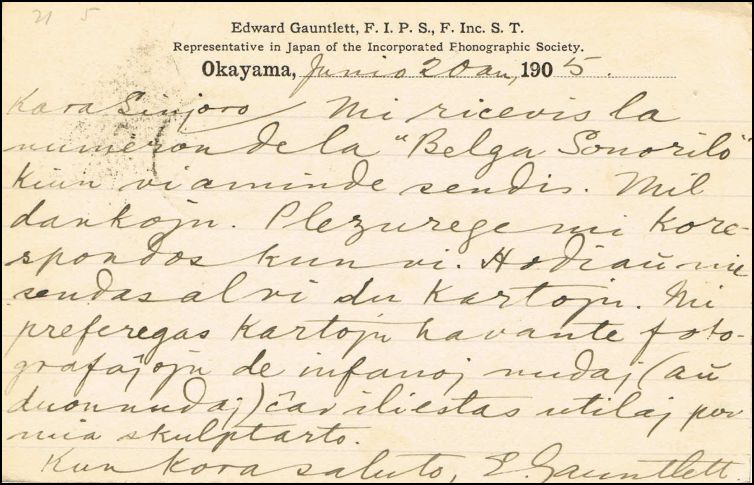 21 5
Edward Gauntlett, F. I. P. S., F. Inc. S. T.
Representative in Japan of the Incorporated Phonographic Society.
Okayama, Junio 20an, 1905.
Kara Sinjoro Mi ricevis la
numeron de la "Belga Sonorilo"
kiun vi aminde sendis. Mil
dankojn. Plezurege mi kore-
spondos kun vi. Hodiaŭ mi
sendas al vi du kartojn. Mi
preferegas kartojn havante foto-
grafaĵojn de infanoj nudaj (aŭ
duonnudaj) ĉar ili estas utilaj por
mia skulptarto.
Kun kora saluto, E. Gauntlett.